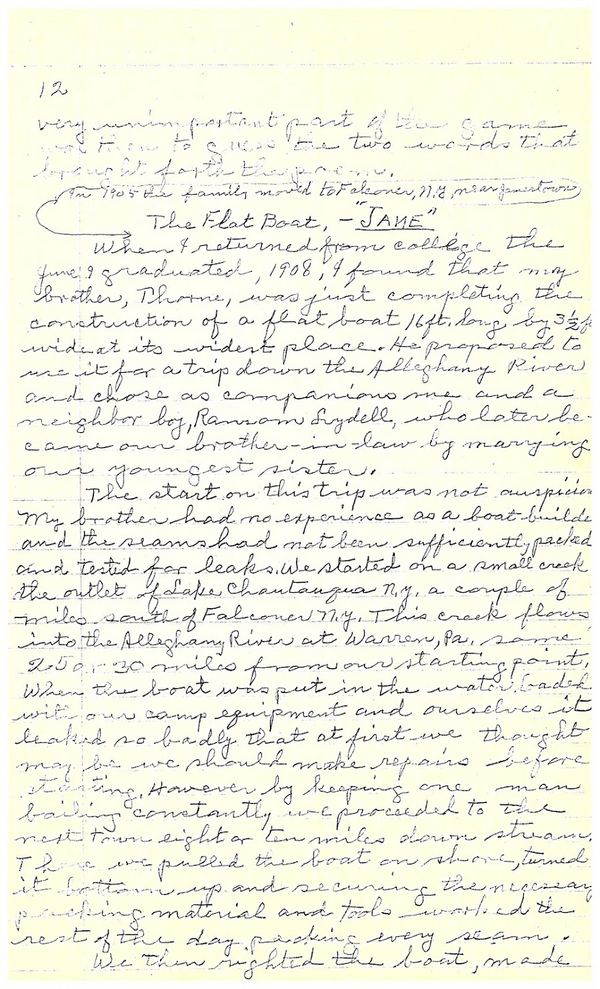 12
very unimportant part of the game
was then to guess the two words that
brought forth the poem.
In 1905 the family moved to Falconer, N.Y. near Jamestown
The Flat Boat, - "JANE"
When I returned from college the
June I graduated, 1908, I found that my
brother, Thorne, was just completing the
construction of a flat boat 16 ft. long by 3½ ft
wide at its widest place. He proposed to
use it for a trip down the Alleghany River
and chose as companions me and a
neighbor boy, Ransom Lydell, who later be-
came our brother-in-law by marrying
our youngest sister.
The start on this trip was not auspicious
My brother had no experience as a boat-builde
and the seams had not been sufficiently packed
and tested for leaks. We started on a small creek
the outlet of Lake Chautauqua N.Y. a couple of
miles south of Falconer N.Y. This creek flows
into the Alleghany River at Warren, Pa. some
25 or 30 miles from our starting point.
When the boat was put in the water loaded
with our camp equipment and ourselves it
leaked so badly that at first we thought
may be we should make repairs before
starting. However by keeping one man
bailing constantly we proceeded to the
next town eight or ten miles down stream.
There we pulled the boat on shore, turned
it bottom up and securing the necessary
packing material and tools worked the
rest of the day packing every seam.
We then righted the boat, made